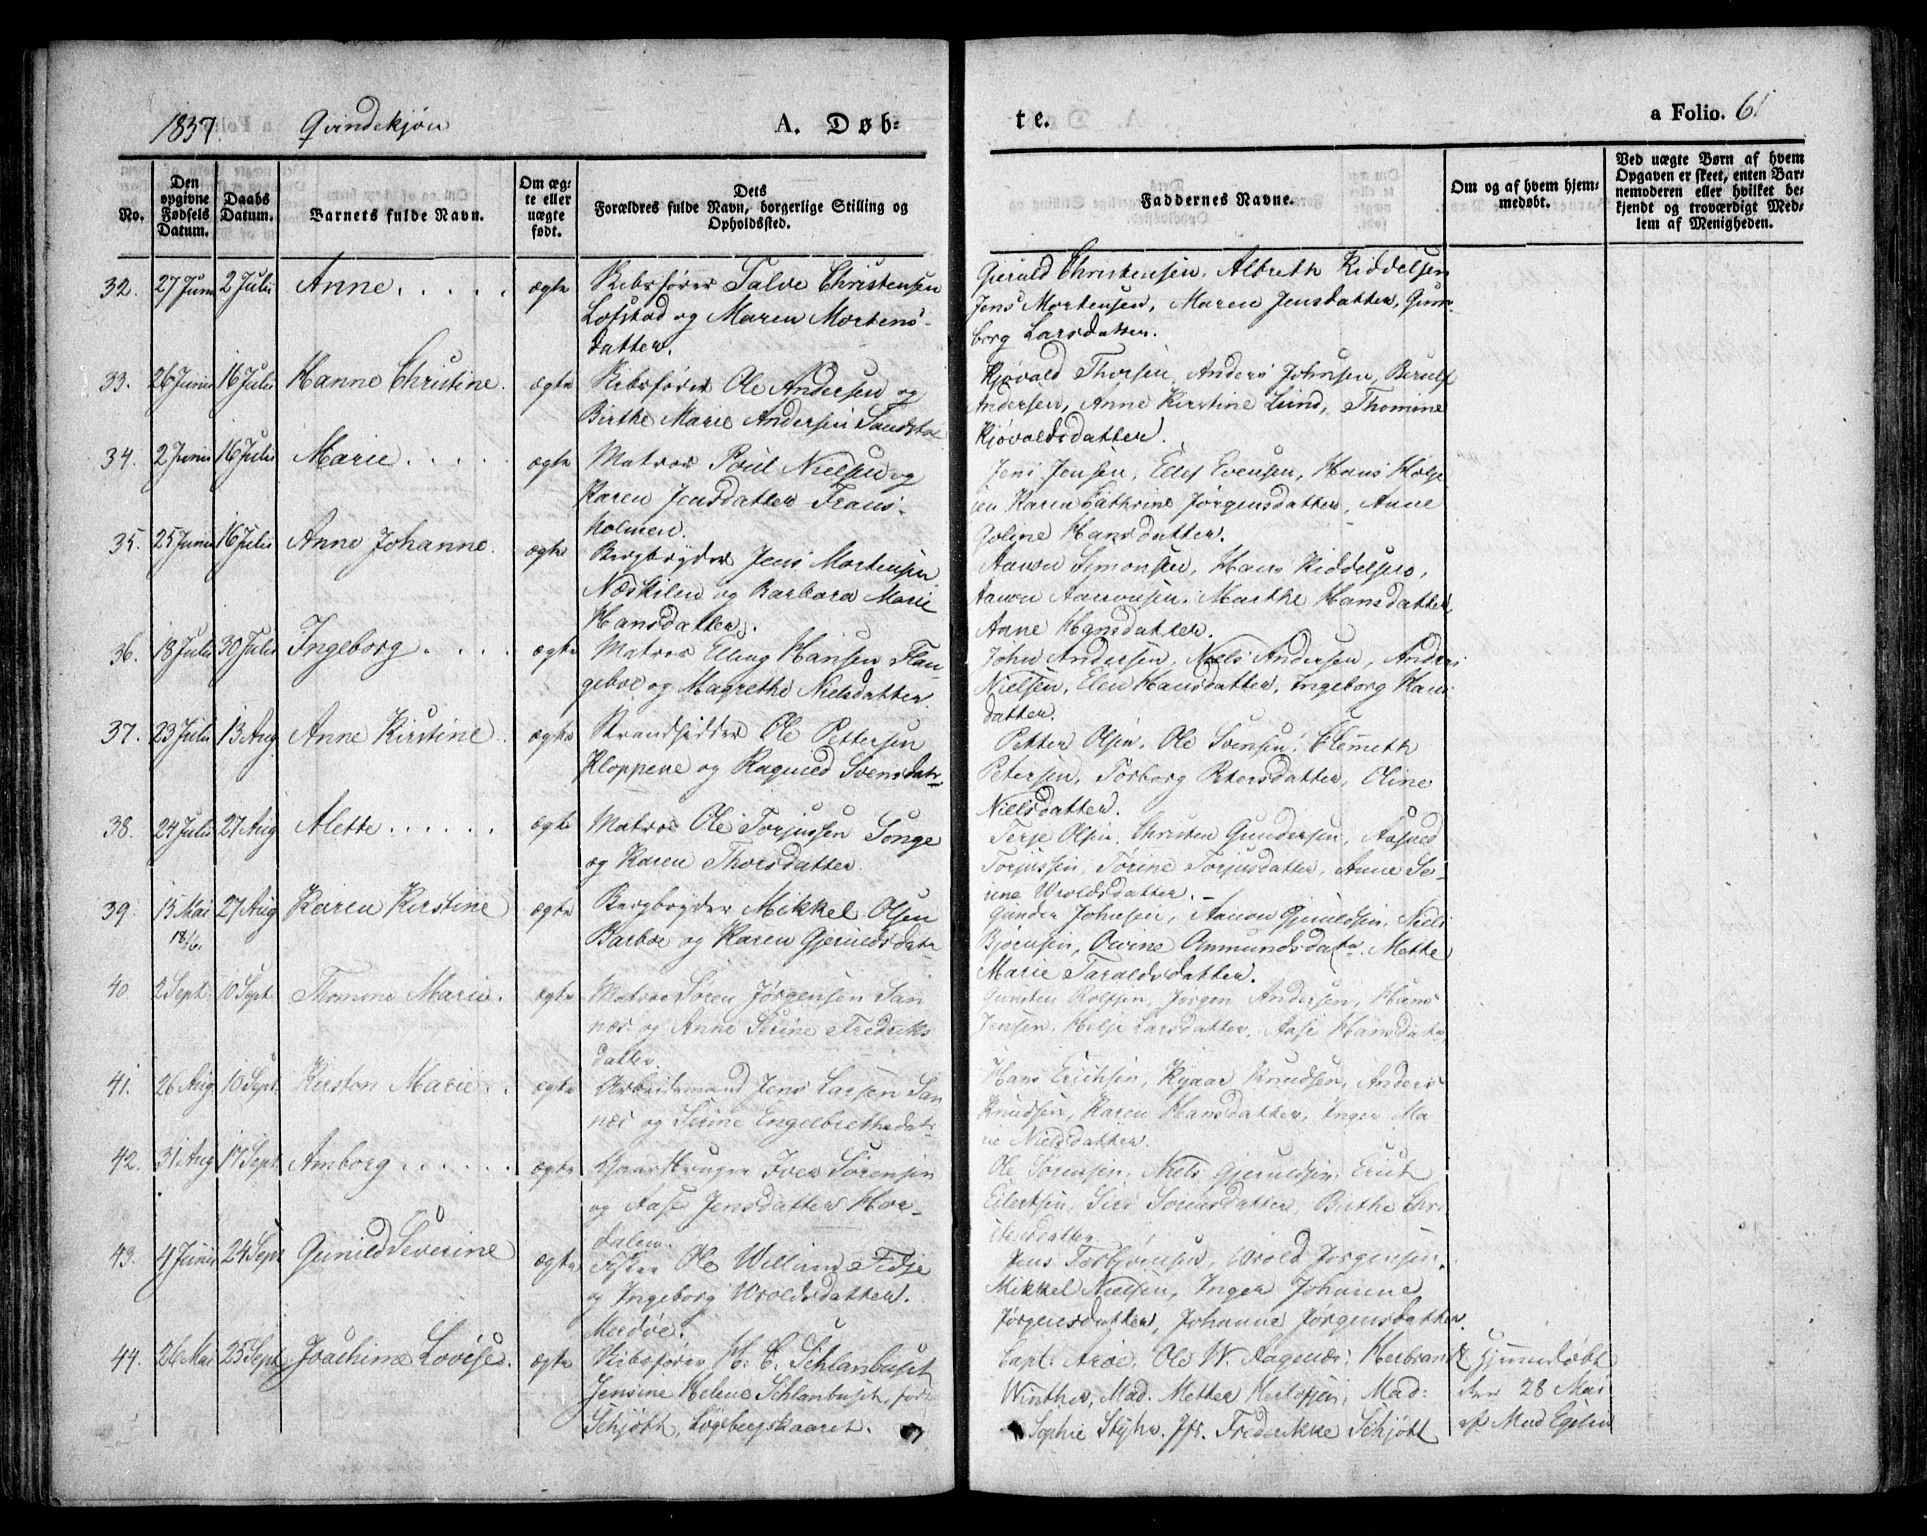 1837. Qvindekjøn A. Døb-
te. a Folio. 61
No.
Den opgivne Fødsels Datum.
Daabs Datum.
Barnets fulde Navn.
Om ægte eller uægte født.
Dets Forældres fulde Navn, borgerlige Stilling og Opholdssted.
Faddernes Navne.
Om og af hvem hjemmedøbt.
Ved uægte Børn af hvem Opgaven er skeet, enten Barnemoderen eller hvilket bekjendt og troværdigt Medlem af Menigheden.
32. 27 Juni 2 Julii Anne. ægte Skibsfører Talve Christensen
Lofstad og Maren Mortens-
datter.
Gjeruld Christensen, Albreth Kiddelsen
Jens Mortensen, Maren Jensdatter, Gun-
borg Larsdatter.
33. 26 Junii 16 Julii Hanne Christine. ægte Skibsfører Ole Andersen og
Birthe Marie Andersen
Kjøvald Thorsen, Anders Johnsen, Berulf
Andersen, Anne Kirstine Lund, Thomine
Kjøvoldsdatter.
34. 2 Junii 16 Julii Marie. ægte Matros Poul Nielsen og
Karen Jensdatter Frans-
holmen.
Jens Jensen, Ellef Evensen, Hans Helje
sen Karen Cathrine Jørgensdatter, Anne
Goline Hansdatter.
35. 25 Junii 16 Julii Anne Johanne. ægte Bergbryder Jens Mortensen
Næskilen og Barbara Marie
Hansdatter.
Aanon Simonsen, Hans Kiddelsen,
Aanon Aanonsen, Marthe Hansdatter,
Anne Hansdatter.
36. 18 Julii 30 Julii Ingeborg. ægte Matros Elling Hansen Flan-
geboe og Magrethe Nielsdatter.
John Andersen, Niels Andersen, Anders
Nielsen, Elen Hansdatter, Ingeborg Hans
datter.
37. 23 Julii 13 Aug Anne Kirstine. ægte Strandsidder Ole Pettersen
Kloppene og Ragnild Svensdatr
Petter Olsen, Ole Svensen, Clemeth
Petersen, Torborg Petersdatter, Oline
Nielsdatter.
38. 24 Julii 27 Aug Alette. ægte Matros Ole Torjussen Songe
og Karen Thorsdatter.
Terje Olsen, Christen Gundersen, Aasuld
Torjussen, Torine Torjusdatter, Anne Se-
rine Wroldsdatter.
39. 15 Mai 18/6. 27 Aug Karen Kirstine ægte Bergbryder Mikkel Olsen
Barboe og Karen Gjeruldsdatr
Gunder Johnsen, Aanon Gjeruldsen, Niels
Bjørnsen, Omunds datr Mette
Marie Taraldsdatter.
40. 2 Sept. 10 Sept. Thomine Marie. ægte Matros Søren Jørgensen San
næs og Anne Serine Fredriks
datter.
Rolfsen, Jørgen Andersen, Hans
Jensen, Helje Larsdatter, Aase Hansdatr
41. 26 Aug. 10 Sept. Kirsten Marie. ægte Arbeidsmand Jens Larsen San
næs og Serine Engelbrethsdatr
Hans Erichsen, Knudsen, Anders
Knudsen, Karen Hansdatter, Inger Ma-
rie Nielsdatter.
42. 31 Aug 17 Sept. Amborg. ægte Gaardbruger Iver Sørensen
og Aase Jensdatter Hor-
dalen.
Ole Sørensen, Niels Gjeruldsen, Erich
Eilertsen, Siri Sørensdatter, Birthe Chri
stensdatter.
43. 4 Junii 24 Sept Gunild Severine ægte Fisker Ole Willumsen Fidje
og Ingeborg Wroldsdatter.
Merdøe.
Jens Torbjørnsen, Wrold Jørgensen,
Mikkel Nielsen, Inger Johanne
Jørgensdatter, Johanne Jørgensdatter.
44. 26 Mai 25 Sept Joachime Lovise. ægte Skibsfører H. C. Schlanbusch
Jensine Helene Schlanbusch, fød
Schjøth, Løgbergskaaret.
Capt. Arøe, Ole W. Aagenæs, Herbrandt
Winther, Mad. Mette Herlofsen, Mad:
Sophie Styhr, Jfr. Frederikke Schjøtt
Hjemmedøbt
den 28 Mai
af Mad Egelin